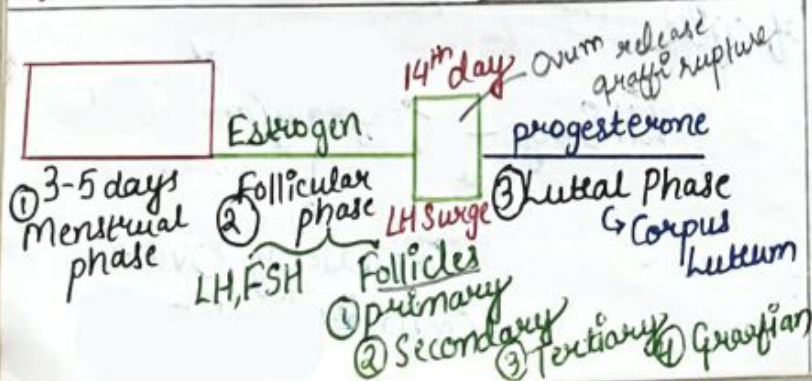 14th day
Ovum release
graffi rupture
Estrogen
progesterone
① 3-5 days
Menstrual
phase
② Follicular
phase
LH Surge
③ Luteal Phase
↳ Corpus
Luteum
LH, FSH
Follicles
① primary
② Secondary
③ Tertiary
④ Graafian